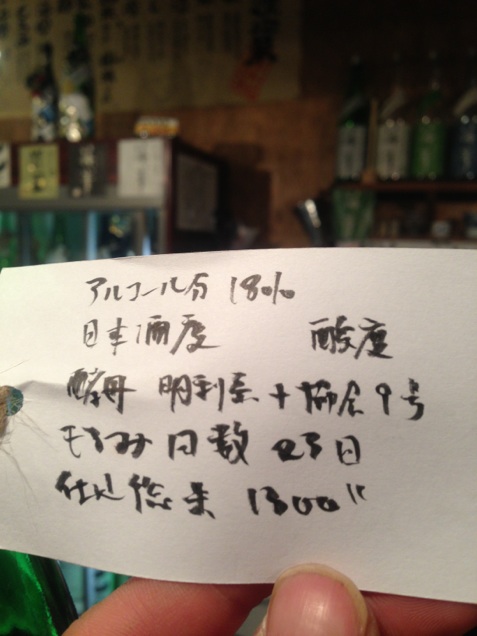 アルコール分 18%
日本酒度 酸度
酵母 明利系+協会9号
もろみ日数 23日
仕込総米 1300〃